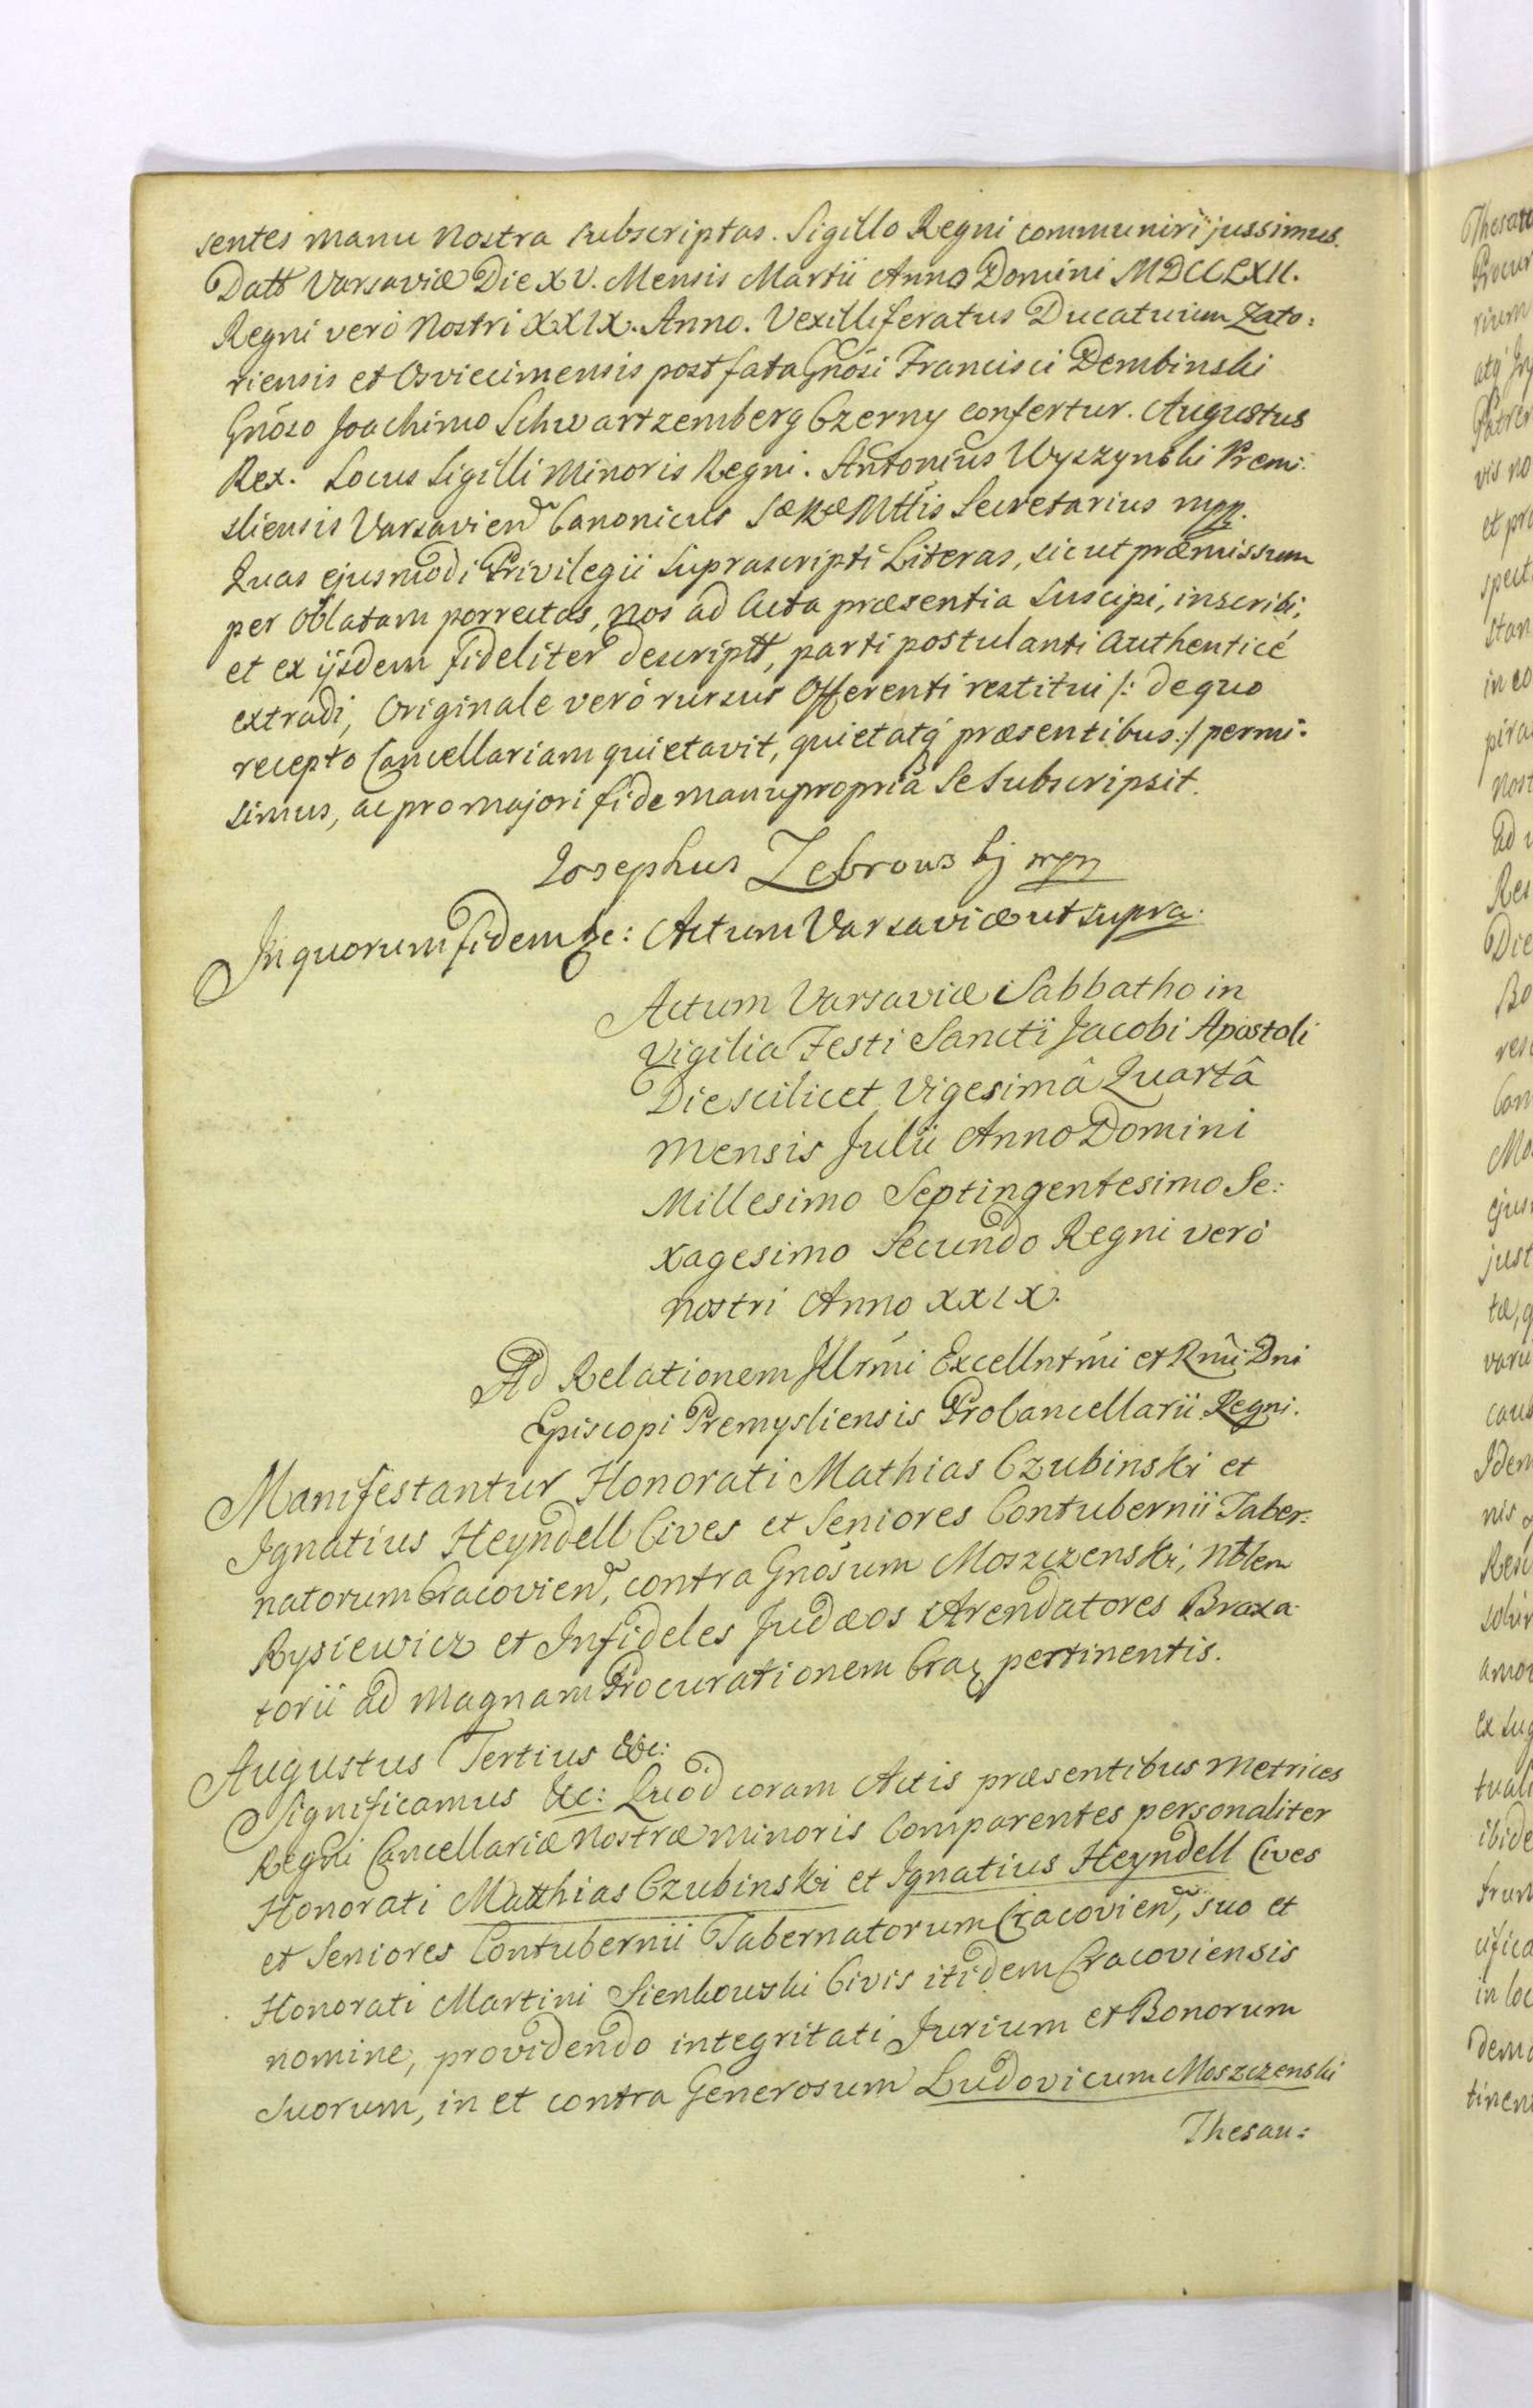 sentes manu Nostra subscriptas. Sigillo Regni communiri jussimus.
Datt Varsaviæ Die XV. Mensis Martii Anno Domini MDCCLXII.
Regni verò Nostri XXIX. Anno. Vexilliferatus Ducatuum Zato:
riensis et Osviecimensis post fata Gnósi Francisci Dembinski
Gnóso Joachimo Schwartzemberg Czerny confertur. Augustus
Rex. Locus Sigilli Minoris Regni. Antonius Wyszynski Premi:
sliensis Varsavien Canonicus SæRæMttis Secretarius mpp.
Quas ejusmodi Privilegii Suprascripti Literas, sicut præmissum
per Oblatam porrectas, nos ad Acta præsentia suscipi, inscribi,
et ex ijsdem fideliter descriptt, parti postulanti Authenticè
extradi, Originale verò rursus Offerenti restitui /: de quo
recepto Cancellariam quietavit, quietatq præsentibus :/ permi:
simus, ac pro majori fide manu propriâ Se Subscripsit.
Josephus Zebrowskj mpp
In quorum fidem &c: Actum Varsaviæ ut supra.
Actum Varsaviæ Sabbatho in
Vigilia Festi Sancti Jacobi Apostoli
Die scilicet Vigesimâ Quartâ
Mensis Julii Anno Domini
Millesimo Septingentesimo Se:
xagesimo Secundo Regni verò
Nostri Anno XXIX.
Ad Relationem Illrmi Excellntmi et Rmi Dni
Episcopi Premysliensis ProCancellarii Regni.
Manifestantur Honorati Mathias Czubinski et
Ignatius Heyndell Cives et Seniores Contubernii Taber:
natorum Cracovien, contra Gnósum Moszczenski, Nblem
Rysiewicz et Infideles Judæos Arendatores Braxa
torii ad Magnam Procurationem Crac pertinentis.
Augustus Tertius &c:
Significamus &c: Quòd coram Actis præsentibus Metrices
Regni Cancellariæ Nostræ Minoris Comparentes personaliter
Honorati Matthias Czubinski et Ignatius Heyndell Cives
et Seniores Contubernii Tabernatorum Cracovien, suo et
Honorati Martini Sienkowski Civis itidem Cracoviensis
nomine, providendo integritati Jurium et Bonorum
Suorum, in et contra Generosum Ludovicum Moszczenski
Thesau: